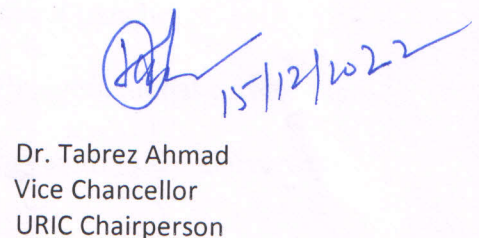 15/12/2022
Dr. Tabrez Ahmad
Vice Chancellor
URIC Chairperson